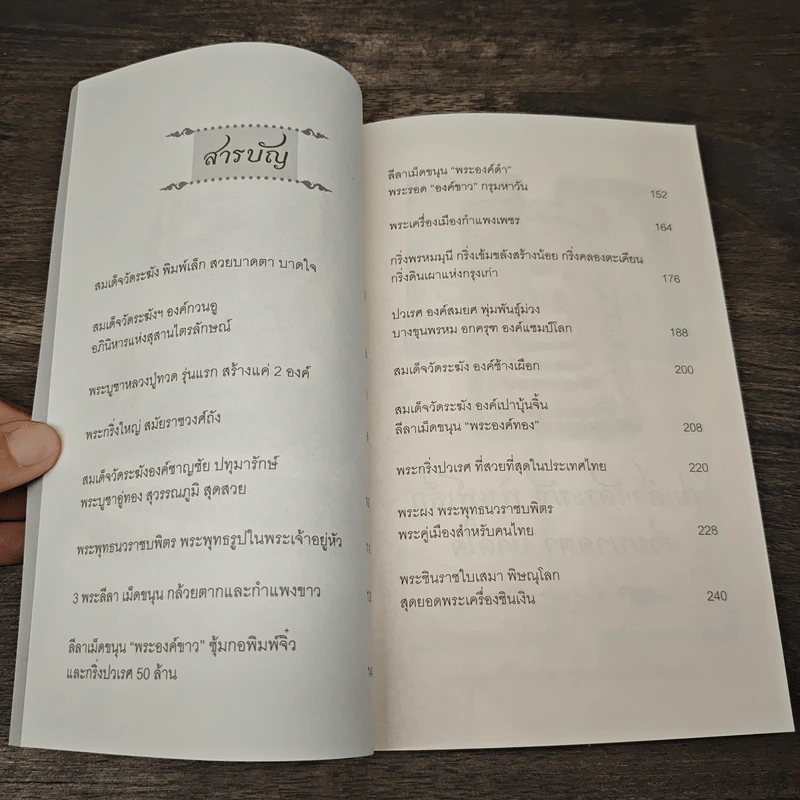 สารบัญ
สมเด็จวัดระฆัง พิมพ์เล็ก สวยบาดตา บาดใจ
สมเด็จวัดระฆังฯ องค์กวนอู
อภินิหารแห่งสุสานไตรลักษณ์
พระบูชาหลวงปู่ทวด รุ่นแรก สร้างแค่ 2 องค์
พระกริ่งใหญ่ สมัยราชวงศ์ถัง
สมเด็จวัดระฆังองค์ชาญชัย ปทุมารักษ์
พระบูชาอู่ทอง สุวรรณภูมิ สุดสวย
พระพุทธนวราชบพิตร พระพุทธรูปในพระเจ้าอยู่หัว
3 พระลีลา เม็ดขนุน กล้วยตากและกำแพงขาว
ลีลาเม็ดขนุน "พระองค์ขาว" ซุ้มกอพิมพ์จิ๋ว
และกริ่งปวเรศ 50 ล้าน
ลีลาเม็ดขนุน "พระองค์ดำ"
พระรอด "องค์ขาว" กรุมหาวัน 152
พระเครื่องเมืองกำแพงเพชร 164
กริ่งพรหมมุนี กริ่งเข้มขลังสร้างน้อย กริ่งคลองตะเคียน
กริ่งดินเผาแห่งกรุงเก่า 176
ปวเรศ องค์สมยศ พุ่มพันธุ์ม่วง
บางขุนพรหม อกครุฑ องค์แชมป์โลก 188
สมเด็จวัดระฆัง องค์ช้างเผือก 200
สมเด็จวัดระฆัง องค์เปาบุ้นจิ้น
ลีลาเม็ดขนุน "พระองค์ทอง" 208
พระกริ่งปวเรศ ที่สวยที่สุดในประเทศไทย 220
พระผง พระพุทธนวราชบพิตร
พระคู่เมืองสำหรับคนไทย 228
พระชินราชใบเสมา พิษณุโลก
สุดยอดพระเครื่องชินเงิน 240